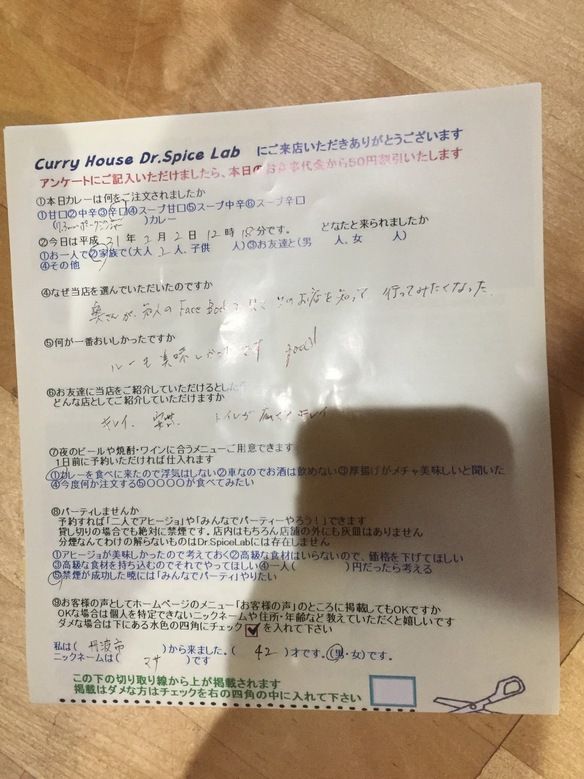 Curry House Dr.Spice Lab にご来店いただきありがとうございます
アンケートにご記入いただけましたら、本日のお食事代金から50円割引いたします
①本日カレーは何をご注文されましたか
①甘口②中辛③辛口④スープ甘口⑤スープ中辛⑥スープ辛口
( )カレー
②今日は平成 31 年 2 月 2 日 12 時 15 分です。 どなたと来られましたか
①お一人で②家族で(大人 2 人、子供 人)③お友達と(男 人、女 人)
④その他
④なぜ当店を選んでいただいたのですか
奥さんが、知人の Face Book で このお店を知って 行ってみたくなった
⑤何が一番おいしかったですか
ルーも美味しかったです good!
⑥お友達に当店をご紹介していただけるとした
どんな店としてご紹介していただけますか
キレイ、禁煙、トイレが広くてキレイ
⑦夜のビールや焼酎・ワインに合うメニューご用意できます
1日前に予約いただければ仕入れます
①カレーを食べに来たので浮気はしない②車なのでお酒は飲めない③厚揚げがメチャ美味しいと聞いた
④今度何か注文する⑤〇〇〇〇が食べてみたい
⑧パーティしませんか
予約すれば「二人でアヒージョ」や「みんなでパーティーやろう!」できます
貸し切りの場合でも絶対に禁煙です。店内はもちろん店舗の外にも灰皿はありません
分煙なんてわけの解らないものはDrSpiceLabには存在しません
①アヒージョが美味しかったので考えておく②高級な食材はいらないので、価格を下げてほしい
③高級な食材を持ち込むのでそれでやってほしい④一人( )円だったら考える
⑤禁煙が成功した暁には「みんなでパーティ」やりたい
⑨お客様の声としてホームページのメニュー「お客様の声」のところに掲載してもOKですか
OKな場合は個人を特定できないニックネームや住所・年齢など教えていただくと嬉しいです
ダメな場合は下にある水色の四角にチェック を入れて下さい
私は( 丹波市 )から来ました。( 42 )才です。(男・女)です。
ニックネームは( マサ )です
この下の切り取り線から上が掲載されます
掲載はダメな方はチェックを右の四角の中に入れて下さい